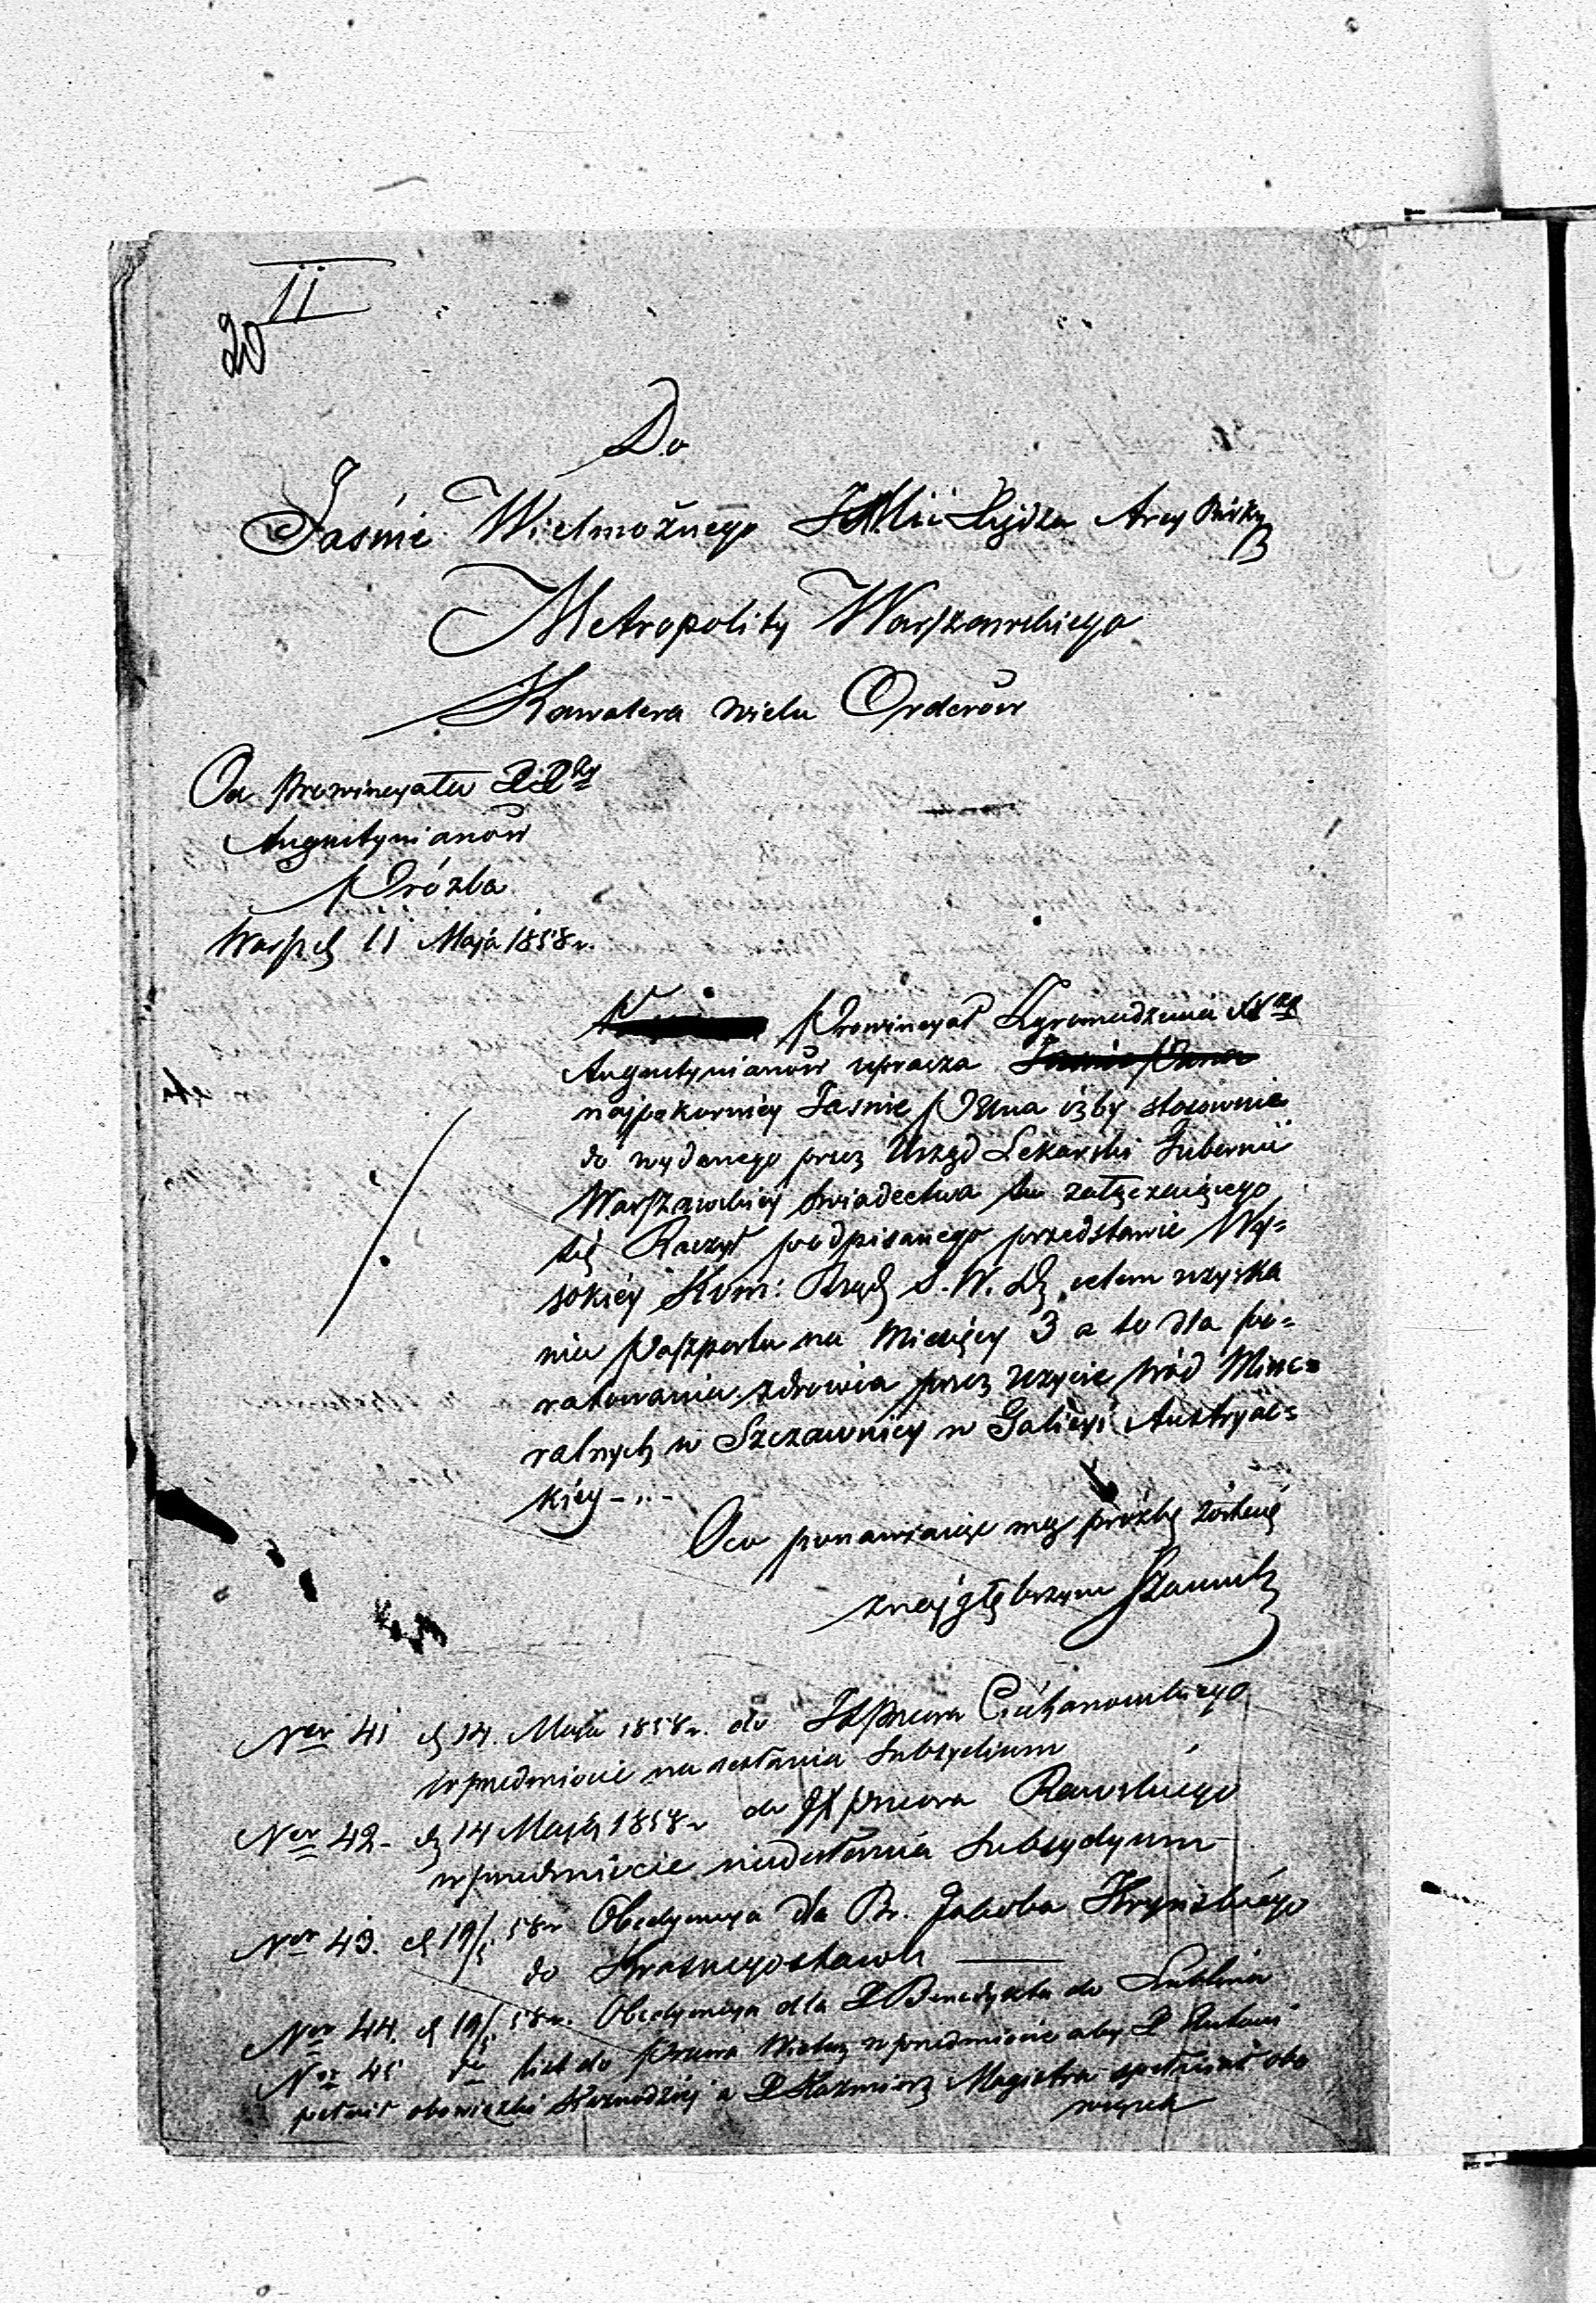 II
20
Do
Jaśnie Wielmożnego JMci Xiędza Arcy Bisku
Metropolity Warszawskiego
Kawalera wielu Orderów
Od Prowincyatu
Augustynianów
Prózba
11 Maja 1858 r.
Prowincyał Zgromadzenia XX
Augustynianów uprasza
najpokorniéy Jasnie Pana iżby stosownie
do wydanego przez Urząd Lekarski Gubernii
Warszawskiéy świadectwa tu załączaiącego
się Raczył podpisanego przedstawić Wy=
sokiéy Kom: Rząd S. W. D, celem uzyska
nia Paszportu na Miesięcy 3 a to dla po=
ratowania zdrowia przez użycie wód Mine=
ralnych w Szczawnicy w Galicyi Austryac=
kiéy - „ -
Oco ponawiaiąc mą prózbę
znajgłębszym
Ner 41 d 14. Maja 1858 r. do JX Przeora Ciechanowskiego
w przedmiocie nadesłania Subsydium
Ner 42 - d 14 Maja 1858 r do JX Przeora Rawskiego
w przedmiocie nadesłania Subsydyum
Ner 43. d 19/5 58 r Obedyencya dla Br. Jakoba Krynskiego
do Krasnegostawu
Ner 44. d 19/5 58 r. Obedyencya dla P Benedykta do Lublina
Ner 45 do list do Przeora w przedmiocie aby P
pełnił obowiązki Kaznodziej a P Kazmierz Magistra spełniał obo
wiązek